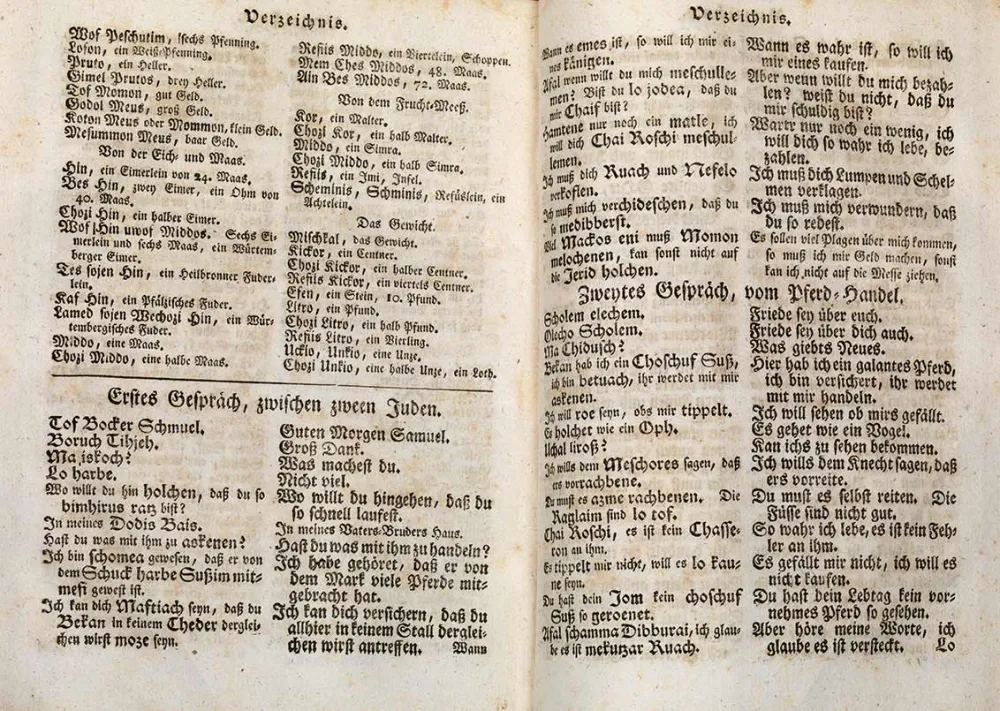 Verzeichnis.
Wof Peschutim, sechs Pfenning.
Lofon, ein Weiß-Pfenning.
Pruto, ein Heller.
Gimel Prutos, drey Heller.
Tof Momon, gut Geld.
Godol Meus, groß Geld.
Koton Meus oder Mommon, klein Geld.
Mesummon Meus, baar Geld.
Von der Eich- und Maas.
Hin, ein Eimerlein von 24. Maas.
Bes Hin, zwey Eimer, ein Ohm von
40. Maas.
Chozi Hin, ein halber Eimer.
Wof Hin uwof Middos. Sechs Ei-
merlein und sechs Maas, ein Würtem-
berger Eimer.
Tes sojen Hin, ein Heilbronner Fuder-
lein.
Kaf Hin, ein Pfälzisches Fuder.
Lamed sojen Wechozi Hin, ein Wür-
tembergisches Fuder.
Middo, eine Maas.
Chozi Middo, eine halbe Maas.
Refiis Middo, ein Viertelein, Schoppen.
Mem Ches Middos, 48. Maas.
Ain Bes Middos, 72. Maas.
Von dem Frucht-Meeß.
Kor, ein Malter.
Chozi Kor, ein halb Malter.
Middo, ein Simra.
Chozi Middo, ein halb Simra.
Refiis, ein Imi, Insel.
Scheminis, Schminis, Refüslein, ein
Achtelein.
Das Gewicht.
Mischkal, das Gewicht.
Kickor, ein Centner.
Chozi Kickor, ein halber Centner.
Refiis Kickor, ein viertels Centner.
Efen, ein Stein, 10. Pfund.
Litro, ein Pfund.
Chozi Litro, ein halb Pfund.
Refiis Litro, ein Vierling.
Uckio, Unkio, eine Unze.
Chozi Unkio, eine halbe Unze, ein Loth.
Erstes Gespräch, zwischen zween Juden.
Tof Bocker Schmuel.
Boruch Tihjeh.
Ma iskoch?
Lo harbe.
Wo willt du hin holchen, daß du so
bimhirus ratz bist?
In meines Dodis Bais.
Hast du was mit ihm zu askenen?
Ich bin schomea gewesen, daß er von
dem Schuck harbe Sußim mit-
mesi gewest ist.
Ich kan dich Maftiach seyn, daß du
Bekan in keinem Cheder derglei-
chen wirst moze seyn.
Guten Morgen Samuel.
Groß Dank.
Was machest du.
Nicht viel.
Wo willt du hingehen, daß du
so schnell laufest.
In meines Vaters-Bruders Haus.
Hast du was mit ihm zu handeln?
Ich habe gehöret, daß er von
dem Mark viele Pferde mit-
gebracht hat.
Ich kan dich versichern, daß du
allhier in keinem Stall derglei-
chen wirst antreffen.
Wann
Verzeichnis.
Wann es emes ist, so will ich mir ei-
nes känigen.
Afal wenn willt du mich meschulle-
men? Bist du lo jodea, daß du
mir Chaif bist?
Hamtene nur noch ein matle, ich
will dich Chai Roschi meschul-
lemen.
Ich muß dich Ruach und Nefelo
verkoslen.
Ich muß mich verchideschen, daß du
so medibberst.
Viel Mackos eni muß Momon
melochenen, kan sonst nicht auf
die Jerid holchen.
Wann es wahr ist, so will ich
mir eines kaufen.
Aber wenn willt du mich bezah-
len? weist du nicht, daß du
mir schuldig bist?
Warte nur noch ein wenig, ich
will dich so wahr ich lebe, be-
zahlen.
Ich muß dich Lumpen und Schel-
men verklagen.
Ich muß mich verwundern, daß
du so redest.
Es sollen viel Plagen über mich kommen,
so muß ich mir Geld machen, sonst
kan ich nicht auf die Messe ziehen.
Zweytes Gespräch, vom Pferd-Handel.
Scholem elechem.
Olecho Scholem.
Ma Chidusch?
Bekan hab ich ein Choschuf Suß,
ich bin betuach, ihr werdet mit mir
askenen.
Ich will roe seyn, obs mir tippelt.
Es holchet wie ein Oph.
Uchal liroß?
Ich wills dem Meschores sagen, daß
ers vorrachbene.
Du must es azme rachbenen. Die
Raglaim sind lo tof.
Chai Roschi, es ist kein Chasse-
ron an ihm.
Es tippelt mir nicht, will es lo kau-
ne seyn.
Du hast dein Jom kein choschuf
Suß so geroenet.
Afal schamma Dibburai, ich glau-
be es ist mekutzar Ruach.
Friede sey über euch.
Friede sey über dich auch.
Was giebts Neues.
Hier hab ich ein galantes Pferd,
ich bin versichert, ihr werdet
mit mir handeln.
Ich will sehen ob mirs gefällt.
Es gehet wie ein Vogel.
Kan ichs zu sehen bekommen.
Ich wills dem Knecht sagen, daß
ers vorreite.
Du must es selbst reiten. Die
Füsse sind nicht gut.
So wahr ich lebe, es ist kein Feh-
ler an ihm.
Es gefällt mir nicht, ich will es
nicht kaufen.
Du hast dein Lebtag kein vor-
nehmes Pferd so gesehen.
Aber höre meine Worte, ich
glaube es ist versteckt.
Lo